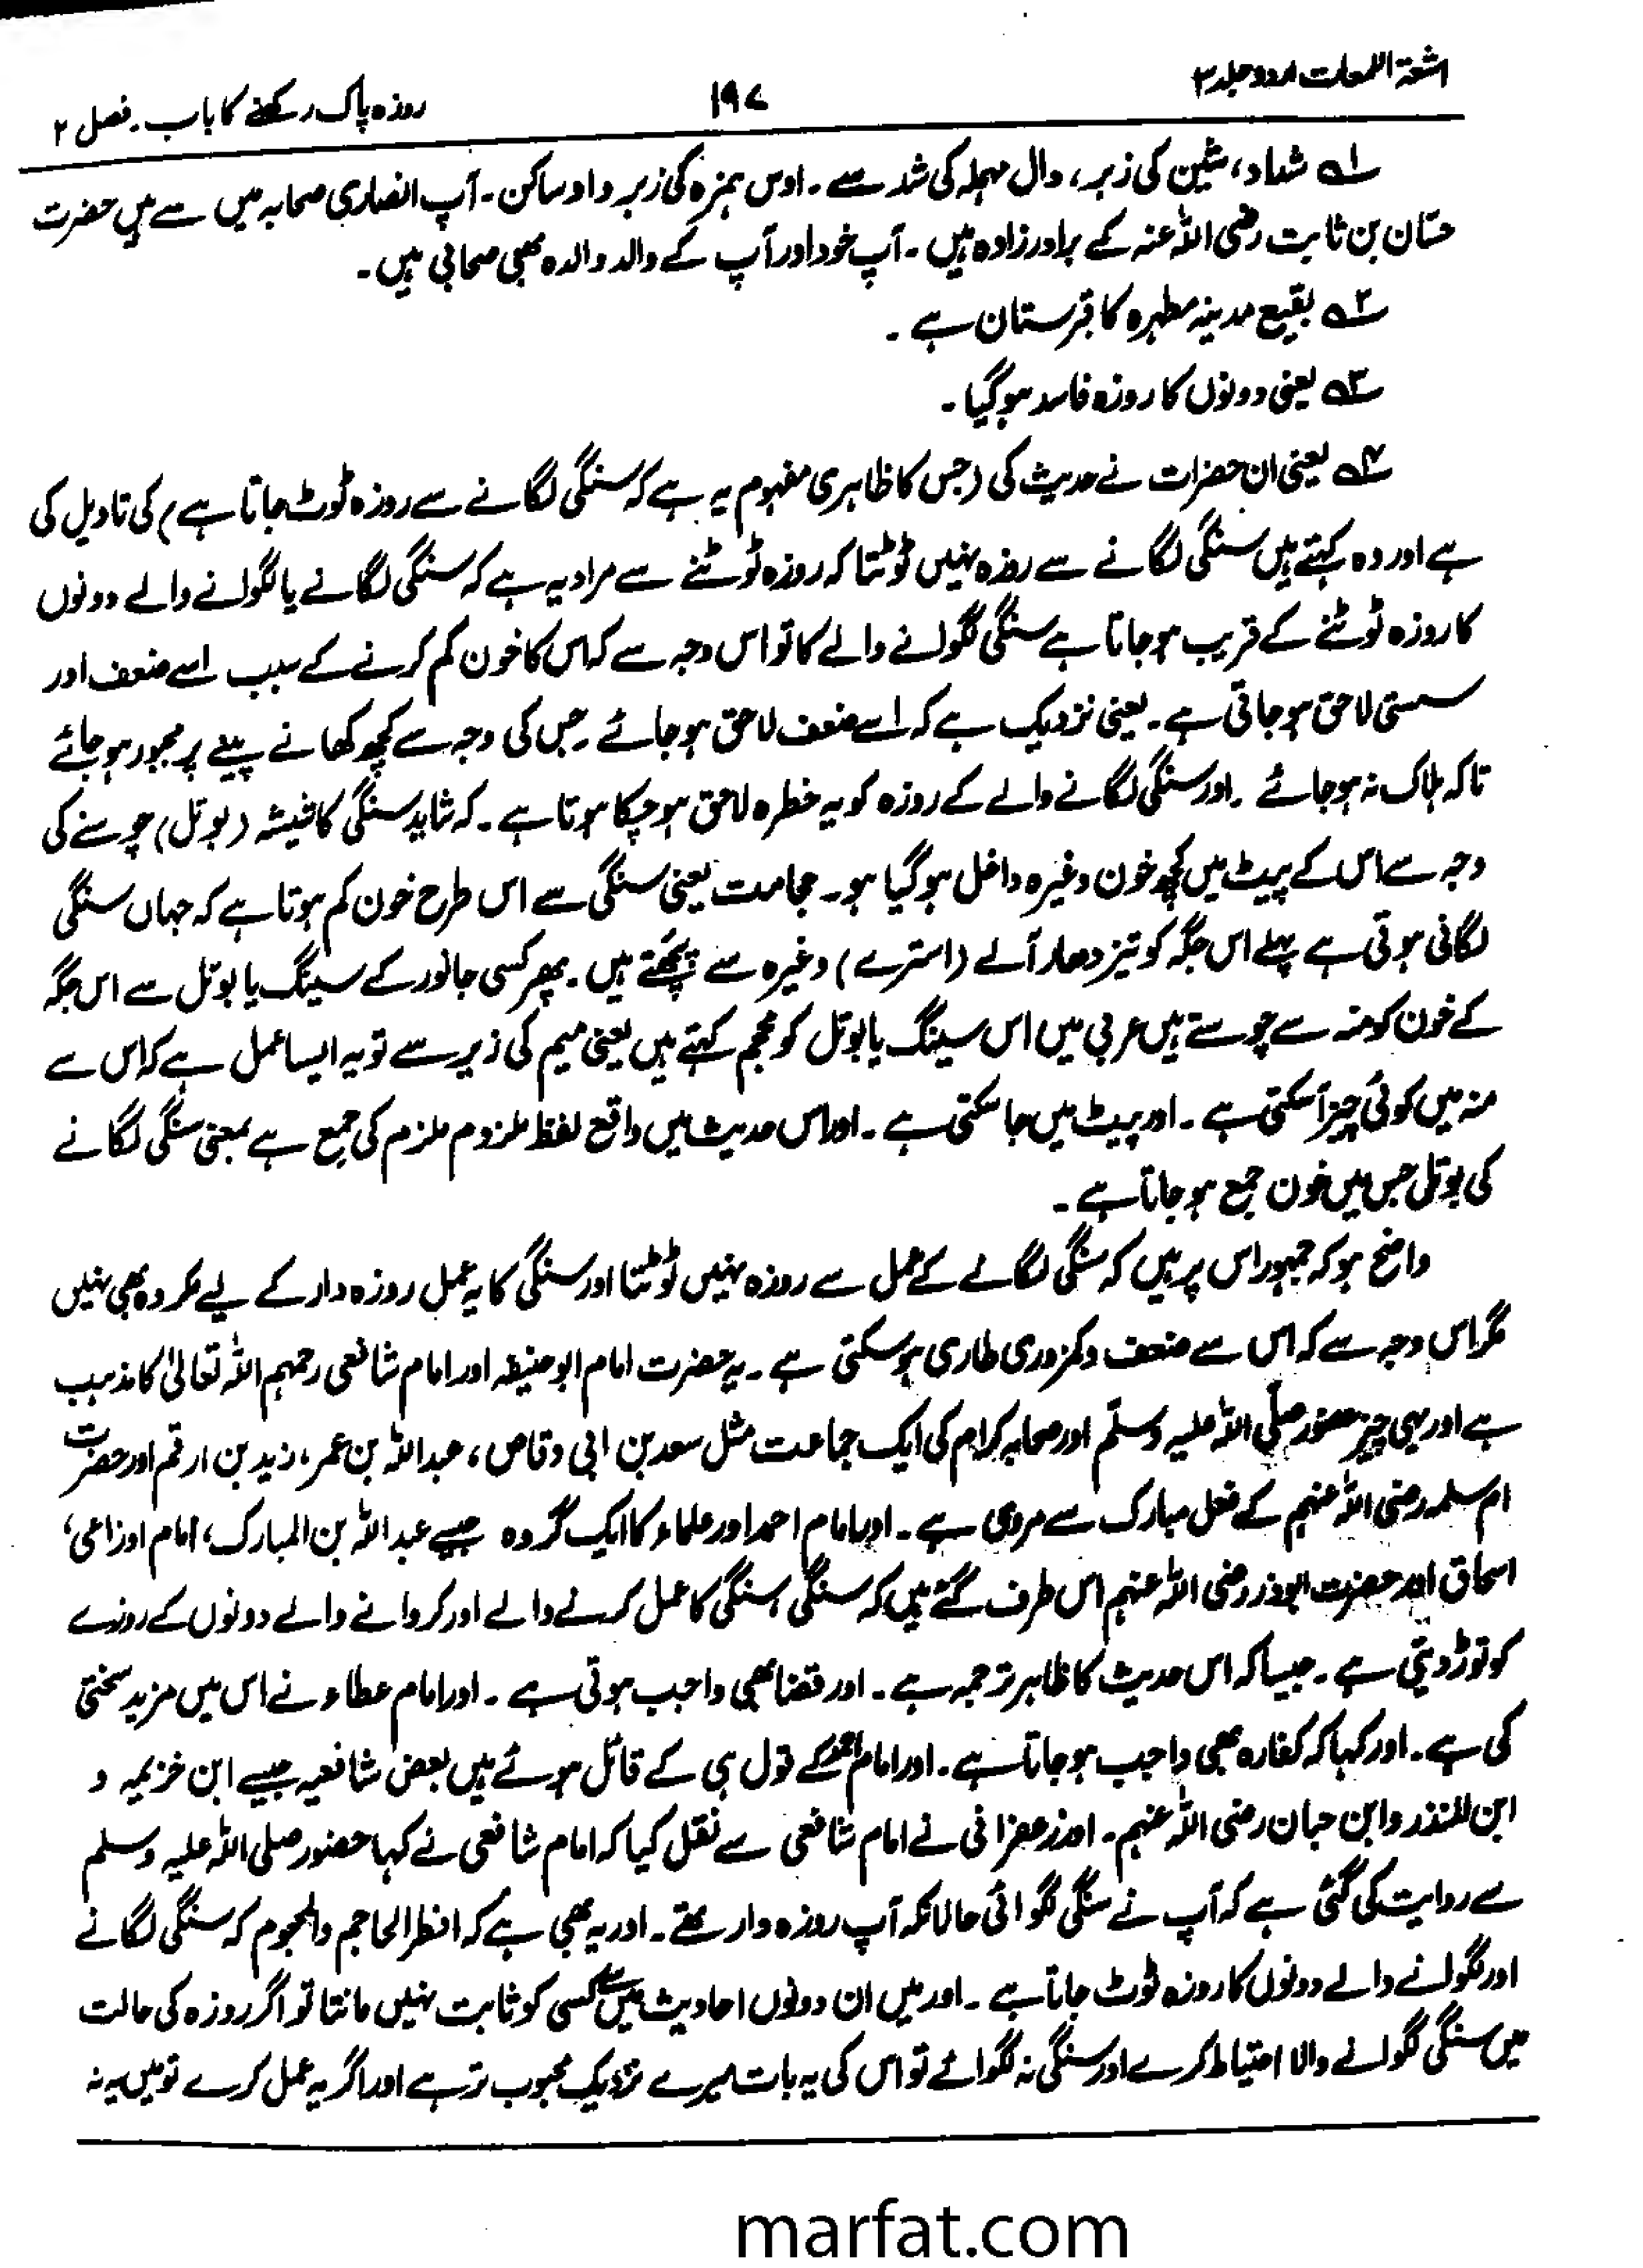 اشعۃ اللمعات اردو جلد ۳
۱۹۷
روزہ پاک رکھنے کا باب۔ فصل ۲
۱؎ شداد، شین کی زبر، دال مہملہ کی شد سے۔ اوس ہمزہ کی زبر واو ساکن۔ آپ انصاری صحابہ میں سے ہیں حضرت
حسّان بن ثابت رضی اللہ عنہ کے برادرزادہ ہیں۔ آپ خود اور آپ کے والد والدہ بھی صحابی ہیں۔
۲؎ بقیع مدینہ مطہرہ کا قبرستان ہے۔
۳؎ یعنی دونوں کا روزہ فاسد ہو گیا۔
۴؎ یعنی ان حضرات نے حدیث کی (جس کا ظاہری مفہوم یہ ہے کہ سنگی لگانے سے روزہ ٹوٹ جاتا ہے) کی تاویل کی
ہے اور وہ کہتے ہیں سنگی لگانے سے روزہ نہیں ٹوٹتا کہ روزہ ٹوٹنے سے مراد یہ ہے کہ سنگی لگانے یا لگوانے والے دونوں
کا روزہ ٹوٹنے کے قریب ہو جاتا ہے سنگی لگوانے والے کا تو اس وجہ سے کہ اس کا خون کم کرنے کے سبب اسے ضعف اور
سستی لاحق ہو جاتی ہے۔ یعنی نزدیک ہے کہ اسے ضعف لاحق ہو جائے۔ جس کی وجہ سے کچھ کھانے پینے پر مجبور ہو جائے
تاکہ ہلاک نہ ہو جائے۔ اور سنگی لگانے والے کے روزہ کو یہ خطرہ لاحق ہو چکا ہوتا ہے۔ کہ شاید سنگی کا شیشہ (بوتل) چوسنے کی
وجہ سے اس کے پیٹ میں کچھ خون وغیرہ داخل ہو گیا ہو۔ حجامت یعنی سنگی سے اس طرح خون کم ہوتا ہے کہ جہاں سنگی
لگانی ہوتی ہے پہلے اس جگہ کو تیز دھار آلے (استرے) وغیرہ سے پچھتے ہیں۔ پھر کسی جانور کے سینگ یا بوتل سے اس جگہ
کے خون کو منہ سے چوستے ہیں عربی میں اس سینگ یا بوتل کو محجم کہتے ہیں یعنی میم کی زیر سے تو یہ ایسا عمل ہے کہ اس سے
منہ میں کوئی چیز آ سکتی ہے۔ اور پیٹ میں جا سکتی ہے۔ اور اس حدیث میں واقع لفظ ملزوم ملزم کی جمع ہے بمعنی سنگی لگانے
کی بوتل جس میں خون جمع ہو جاتا ہے۔
واضح ہو کہ جمہور اس پر ہیں کہ سنگی لگانے کے عمل سے روزہ نہیں ٹوٹتا اور سنگی کا یہ عمل روزہ دار کے لیے مکروہ بھی نہیں
مگر اس وجہ سے کہ اس سے ضعف و کمزوری طاری ہو سکتی ہے۔ یہ حضرت امام ابو حنیفہ اور امام شافعی رحمہم اللہ تعالیٰ کا مذہب
ہے اور یہی چیز حضور صلّی اللہ علیہ وسلّم اور صحابہ کرام کی ایک جماعت مثل سعد بن ابی وقاص، عبد اللہ بن عمر، زید بن ارقم اور حضرت
ام سلمہ رضی اللہ عنہم کے فعل مبارک سے مروی ہے۔ اور امام احمد اور علماء کا ایک گروہ جیسے عبد اللہ بن المبارک، امام اوزاعی،
اسحاق اور حضرت ابو ذر رضی اللہ عنہم اس طرف گئے ہیں کہ سنگی، سنگی کا عمل کرنے والے اور کروانے والے دونوں کے روزے
کو توڑ دیتی ہے۔ جیسا کہ اس حدیث کا ظاہر ترجمہ ہے۔ اور قضا بھی واجب ہوتی ہے۔ اور امام عطاء نے اس میں مزید سختی
کی ہے۔ اور کہا کہ کفارہ بھی واجب ہو جاتا ہے۔ اور امام احمد کے قول ہی کے قائل ہوئے ہیں بعض شافعیہ جیسے ابن خزیمہ و
ابن المنذر و ابن حبان رضی اللہ عنہم۔ اور زعفرانی نے امام شافعی سے نقل کیا کہ امام شافعی نے کہا حضور صلی اللہ علیہ وسلم
سے روایت کی گئی ہے کہ آپ نے سنگی لگوائی حالانکہ آپ روزہ دار تھے۔ اور یہ بھی ہے کہ افطر الحاجم والمحجوم کہ سنگی لگانے
اور لگوانے والے دونوں کا روزہ ٹوٹ جاتا ہے۔ اور میں ان دونوں احادیث میں سے کسی کو ثابت نہیں مانتا تو اگر روزہ کی حالت
میں سنگی لگوانے والا احتیاط کرے اور سنگی نہ لگوائے تو اس کی یہ بات میرے نزدیک محبوب تر ہے اور اگر یہ عمل کرے تو میں یہ نہ
marfat.com